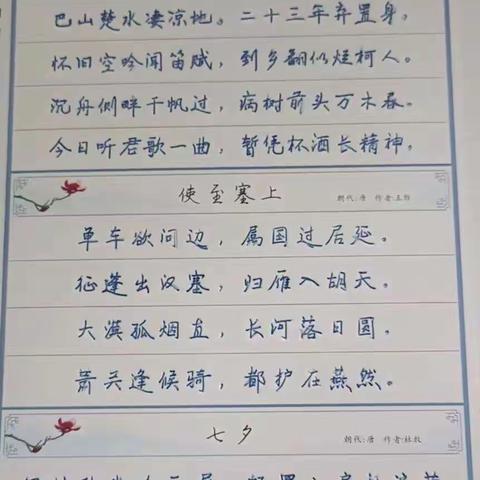 巴山楚水凄凉地。二十三年弃置身，
怀旧空吟闻笛赋，到乡翻似烂柯人。
沉舟侧畔千帆过，病树前头万木春。
今日听君歌一曲，暂凭杯酒长精神，
使至塞上
朝代:唐 作者:王维
单车欲问边，属国过居延。
征蓬出汉塞，归雁入胡天。
大漠孤烟直，长河落日圆。
萧关逢候骑，都护在燕然。
七夕
朝代:唐 作者:杜牧